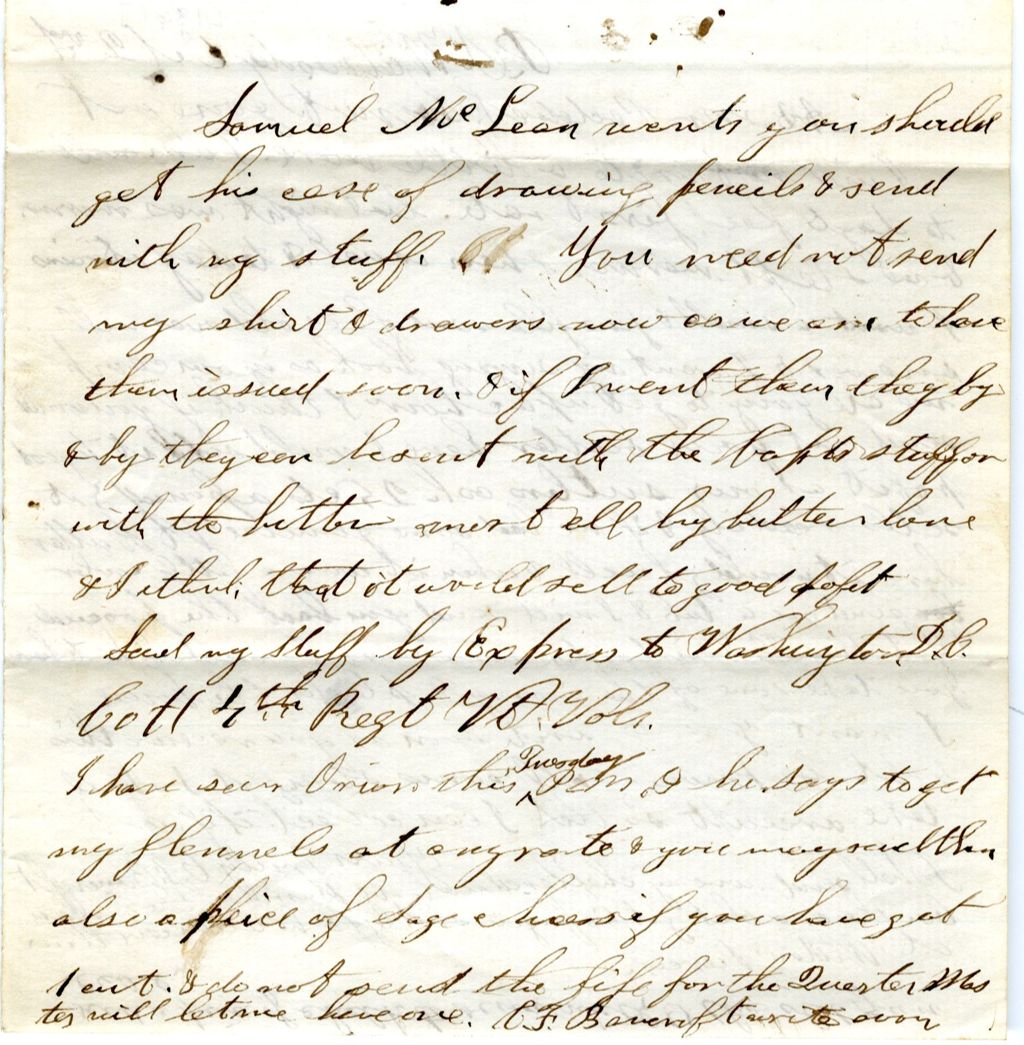 Samuel McLean wants you should
get his case of drawing pencils & send
with my stuff. You need not send
my shirt & drawers now as we are to have
them issued soon. & if I want them they by
& by they can be sent with the Capts stuff or
with the butter most all buy butter here
& I think that it would sell to good profit
Send my stuff by Express to Washington D.C.
Co H 4th Regt Vt. Vols.
I have seen Orion this Tuesday P.M. & he says to get
my flannels at any rate & you may send them
also a peice of Sage cheese if you have got
1 cut. & do not send the fife for the Quarter Mas
ter will let me have one. C F Bancroft write soon